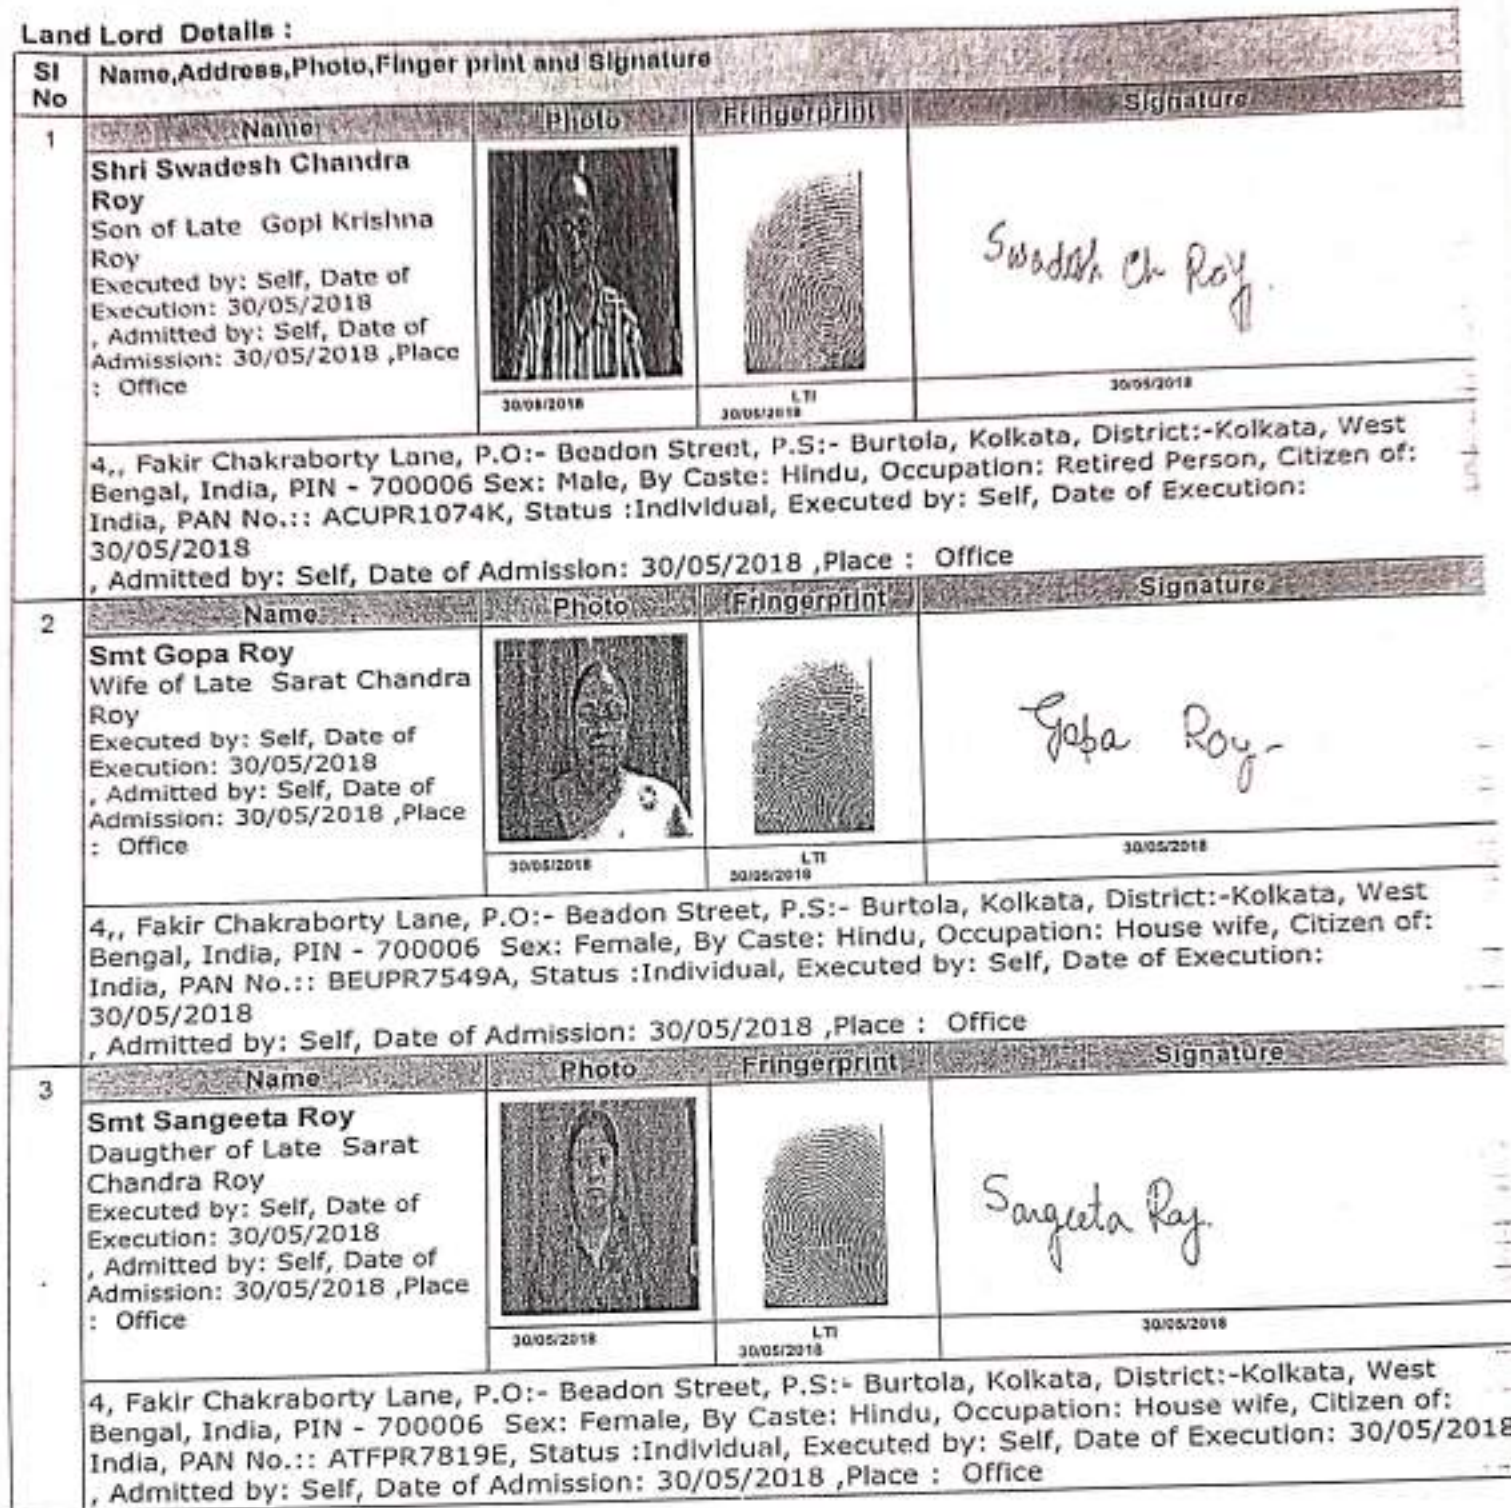 Land Lord Details :
Sl No
Name,Address,Photo,Finger print and Signature
1
Name Photo Fringerprint Signature
Shri Swadesh Chandra
Roy
Son of Late Gopi Krishna
Roy
Executed by: Self, Date of
Execution: 30/05/2018
, Admitted by: Self, Date of
Admission: 30/05/2018 ,Place
: Office
Swadesh Ch Roy.
30/05/2018
LTI
30/05/2018
30/05/2018
4,, Fakir Chakraborty Lane, P.O:- Beadon Street, P.S:- Burtola, Kolkata, District:-Kolkata, West
Bengal, India, PIN - 700006 Sex: Male, By Caste: Hindu, Occupation: Retired Person, Citizen of:
India, PAN No.:: ACUPR1074K, Status :Individual, Executed by: Self, Date of Execution:
30/05/2018
, Admitted by: Self, Date of Admission: 30/05/2018 ,Place : Office
2
Name Photo Fringerprint Signature
Smt Gopa Roy
Wife of Late Sarat Chandra
Roy
Executed by: Self, Date of
Execution: 30/05/2018
, Admitted by: Self, Date of
Admission: 30/05/2018 ,Place
: Office
Gopa Roy
30/05/2018
LTI
30/05/2018
30/05/2018
4,, Fakir Chakraborty Lane, P.O:- Beadon Street, P.S:- Burtola, Kolkata, District:-Kolkata, West
Bengal, India, PIN - 700006 Sex: Female, By Caste: Hindu, Occupation: House wife, Citizen of:
India, PAN No.:: BEUPR7549A, Status :Individual, Executed by: Self, Date of Execution:
30/05/2018
, Admitted by: Self, Date of Admission: 30/05/2018 ,Place : Office
3
Name Photo Fringerprint Signature
Smt Sangeeta Roy
Daugther of Late Sarat
Chandra Roy
Executed by: Self, Date of
Execution: 30/05/2018
, Admitted by: Self, Date of
Admission: 30/05/2018 ,Place
: Office
Sangeeta Roy.
30/05/2018
LTI
30/05/2018
30/05/2018
4, Fakir Chakraborty Lane, P.O:- Beadon Street, P.S:- Burtola, Kolkata, District:-Kolkata, West
Bengal, India, PIN - 700006 Sex: Female, By Caste: Hindu, Occupation: House wife, Citizen of:
India, PAN No.:: ATFPR7819E, Status :Individual, Executed by: Self, Date of Execution: 30/05/2018
, Admitted by: Self, Date of Admission: 30/05/2018 ,Place : Office